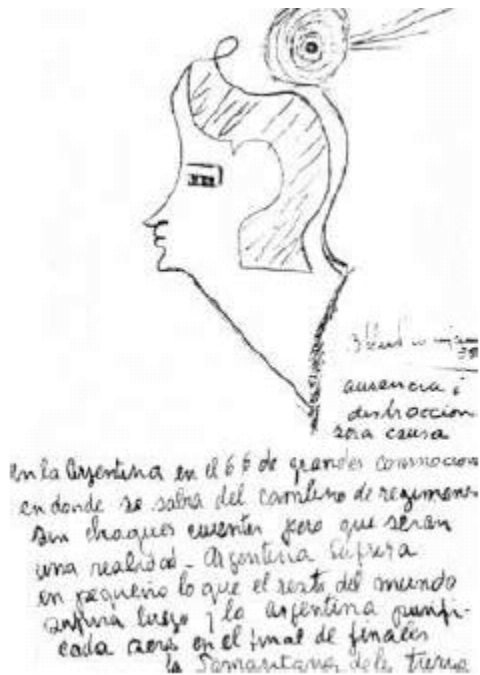 ausencia i
destruccion
sera causa
en la Argentina en el 66 de grandes conmocion
en donde se sabra del cambio de regimenes
sin choques cruentos pero que seran
una realidad - Argentina Sufrira
en pequeño lo que el resto del mundo
sufrira luego y la argentina purifi-
cada sera en el final de finales
la Samaritana de la tierra